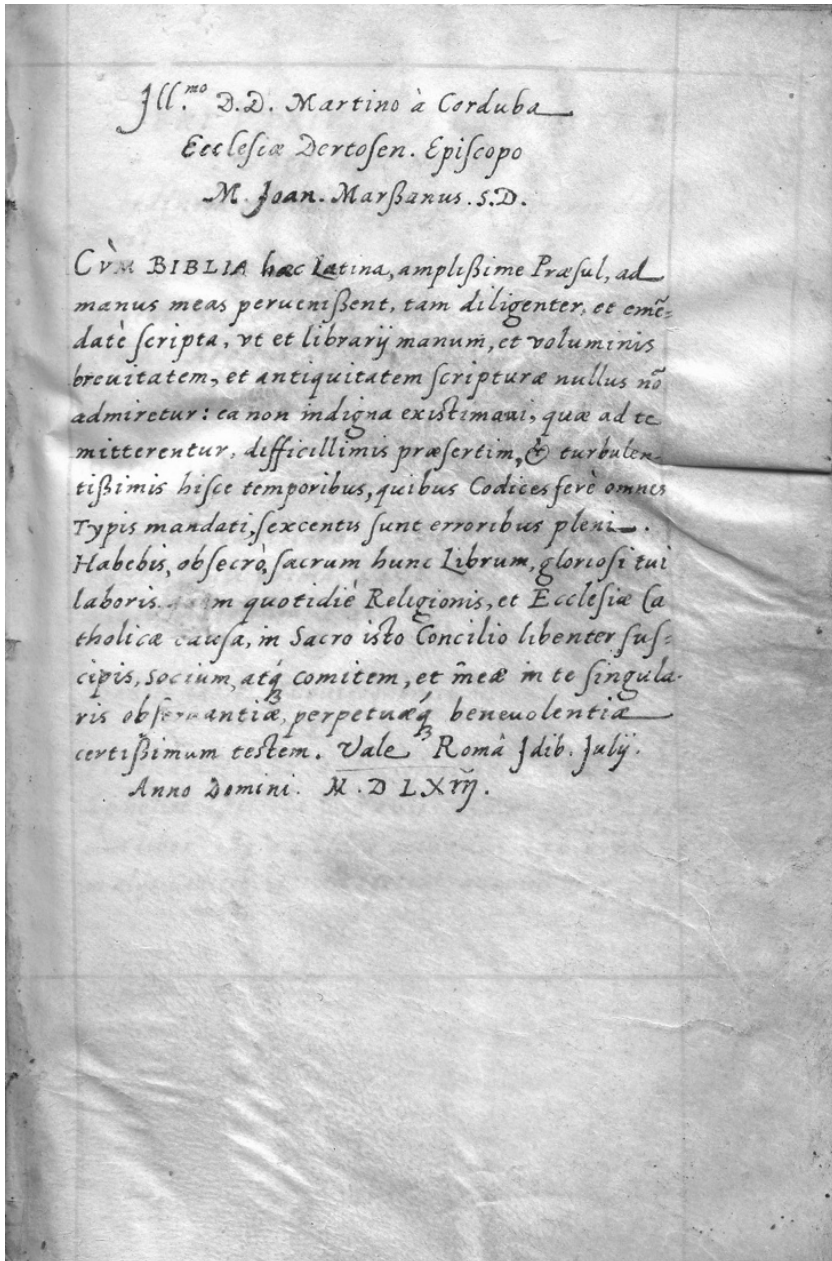 Ill.mo D.D. Martino à Corduba
Ecclesiæ Dertosen. Episcopo
M. Joan. Marßanus. S.D.
CVM BIBLIA hæc Latina, amplißime Præsul, ad
manus meas peruenißent, tam diligenter, et emē-
datè scripta, vt et librarij manum, et voluminis
breuitatem, et antiquitatem scripturæ nullus nō
admiretur: ea non indigna existimaui, quæ ad te
mitterentur, difficillimis præsertim, & turbulen-
tißimis hisce temporibus, quibus Codices ferè omnes
Typis mandati, sexcentis sunt erroribus pleni.
Habebis, obsecrò, sacrum hunc Librum, gloriosi tui
laboris quotidiè Religionis, et Ecclesiæ Ca
tholicæ causa, in Sacro isto Concilio libenter sus-
cipis, socium, atq́ꝫ comitem, et meæ in te singula-
ris obseruantiæ, perpetuæq́ꝫ beneuolentiæ
certißimum testem. Vale Româ Idib. Julij.
Anno Domini. M. D LXIIJ.